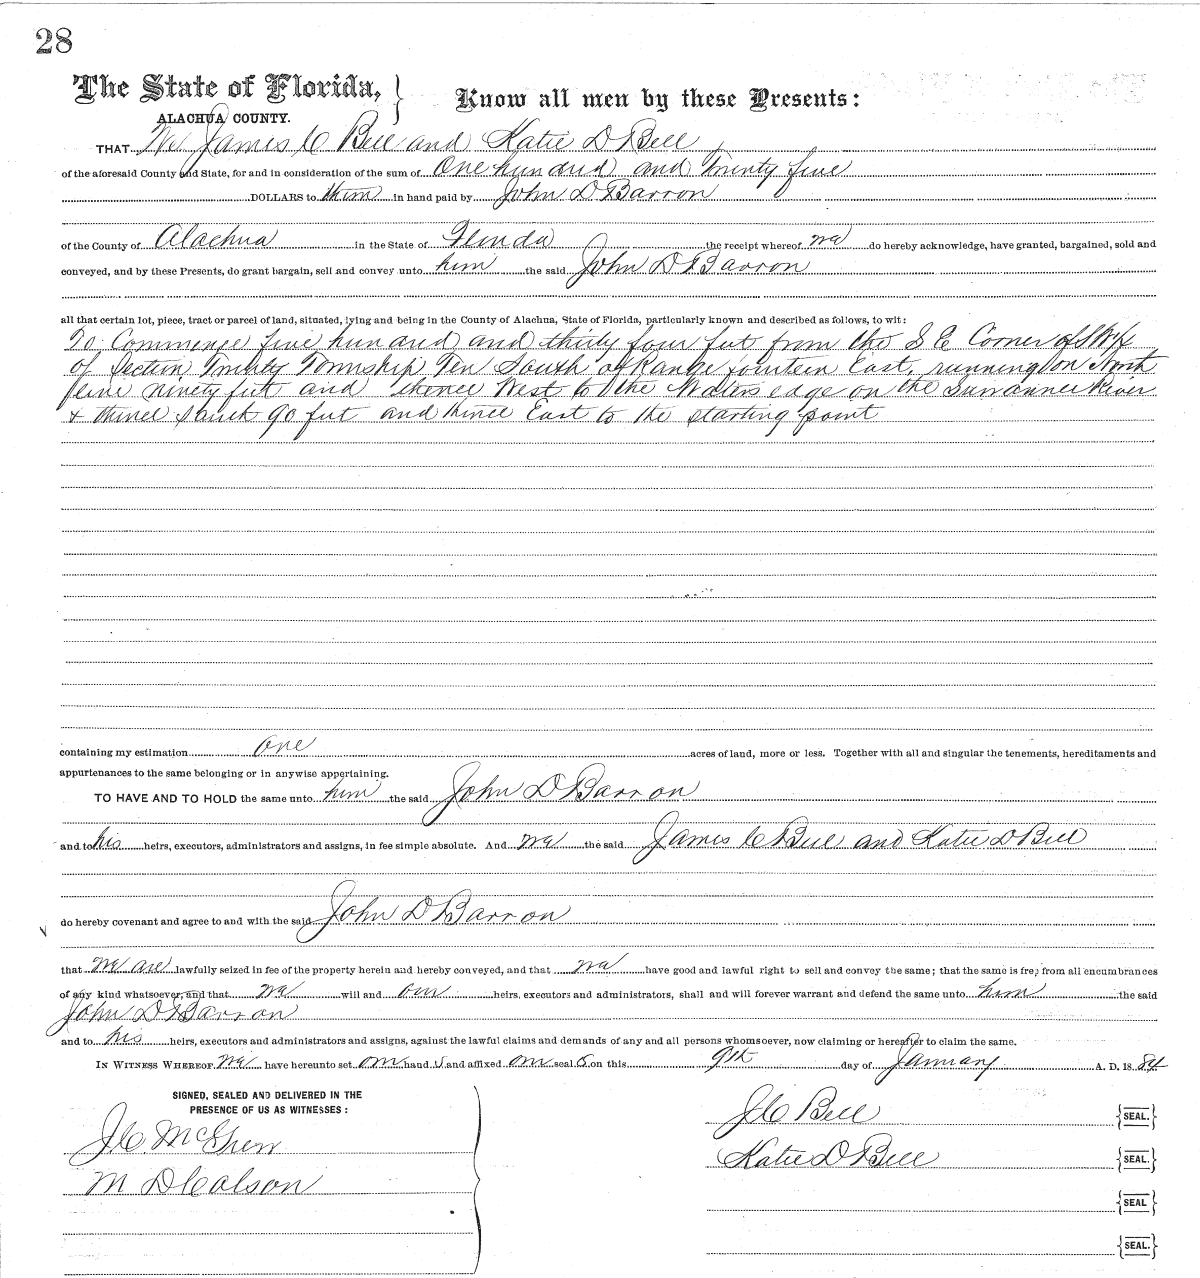 28
The State of Florida, } Know all men by these Presents:
ALACHUA COUNTY.
THAT We James C Bell and Katie D Bell
of the aforesaid County and State, for and in consideration of the sum of One hundred and Twenty five
DOLLARS to them in hand paid by John D Barron
of the County of Alachua in the State of Florida the receipt whereof we do hereby acknowledge, have granted, bargained, sold and
conveyed, and by these Presents, do grant bargain, sell and convey unto him the said John D Barron
all that certain lot, piece, tract or parcel of land, situated, lying and being in the County of Alachua, State of Florida, particularly known and described as follows, to wit:
To Commence five hundred and thirty four feet from the S E Corner of
of Section Twenty Township Ten South of Range fourteen East, running on North
line ninety feet and thence West to the Waters edge on the Suwannee River
& thence South 90 feet and thence East to the starting point
containing my estimation one acres of land, more or less. Together with all and singular the tenements, hereditaments and
appurtenances to the same belonging or in anywise appertaining.
TO HAVE AND TO HOLD the same unto him the said John D Barron
and to his heirs, executors, administrators and assigns, in fee simple absolute. And we the said James C Bell and Katie D Bell
do hereby covenant and agree to and with the said John D Barron
that we are lawfully seized in fee of the property herein and hereby conveyed, and that we have good and lawful right to sell and convey the same; that the same is free from all encumbrances
of any kind whatsoever, and that we will and our heirs, executors and administrators, shall and will forever warrant and defend the same unto him the said
John D Barron
and to his heirs, executors and administrators and assigns, against the lawful claims and demands of any and all persons whomsoever, now claiming or hereafter to claim the same.
IN WITNESS WHEREOF we have hereunto set our hand s and affixed our seal s on this 9th day of January A. D. 1884
SIGNED, SEALED AND DELIVERED IN THE
PRESENCE OF US AS WITNESSES:
J C Bell {SEAL.}
J C McGrew
Katie D Bell {SEAL}
M D Colson
{SEAL}
{SEAL.}